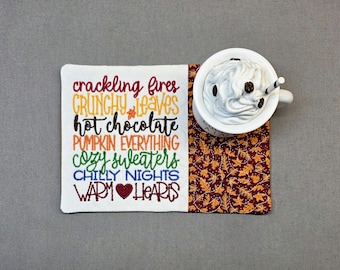 crackling fires
CRUNCHY leaves
hot chocolate
PUMPKIN EVERYTHING
cozy sweaters
CHILLY NIGHTS
WARM HEARTS